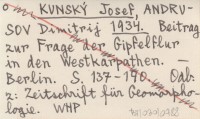 KUNSKÝ Josef, ANDRU-
SOV Dimitrij 1934. Beitrag
zur Frage der Gipfelflur
in den Westkarpathen. —
Berlin. S. 137-140. Oab.
z: Zeitschrift für Geomorpho-
logie. WHP